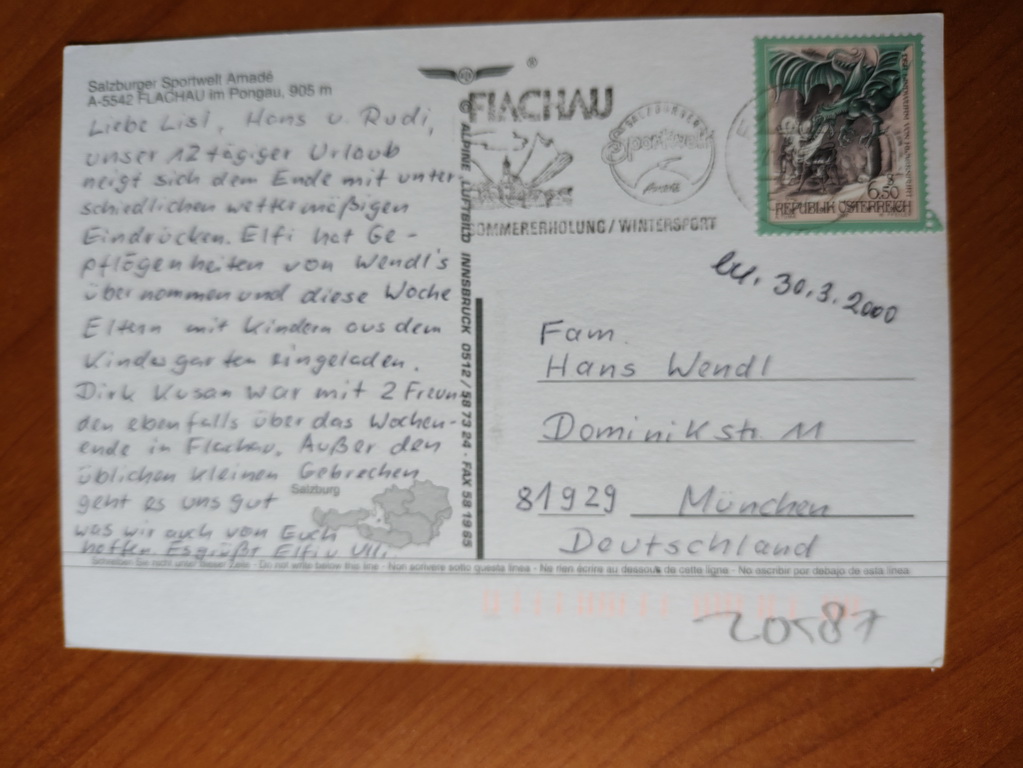 Salzburger Sportwelt Amadé
A-5542 FLACHAU im Pongau, 905 m
Liebe Lisl, Hans u. Rudi,
unser 12tägiger Urlaub
neigt sich dem Ende mit unter-
schiedlichen wettermäßigen
Eindrücken. Elfi hat Ge-
pflogenheiten von Wendl's
übernommen und diese Woche
Eltern mit Kindern aus dem
Kindergarten eingeladen.
Dirk Kusan war mit 2 Freun-
den ebenfalls über das Wochen-
ende in Flachau. Außer den
üblichen kleinen Gebrechen
geht es uns gut
was wir auch von Euch
hoffen. Es grüßt Elfi u. Ulli
Salzburg
© ALPINE LUFTBILD INNSBRUCK 0512/58 73 24 - FAX 58 19 85
®
FLACHAU
SALZBURGER
Sportwelt
Amadé
SOMMERERHOLUNG/WINTERSPORT
6.50
REPUBLIK ÖSTERREICH
30.3.2000
Fam.
Hans Wendl
Dominikstr. 11
81929 München
Deutschland
Schreiben Sie nicht unter dieser Zeile - Do not write below this line - Non scrivere sotto questa linea - Ne rien écrire au dessous de cette ligne - No escribir por debajo de esta linea
20587